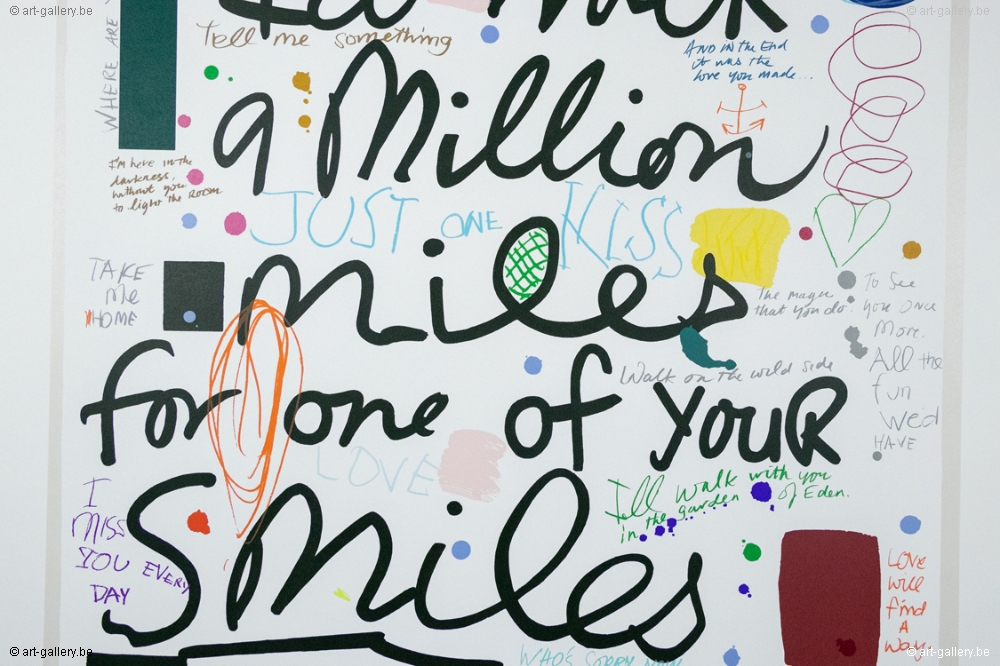 © art-gallery.be
© art-gallery.be
WHERE ARE
Tell me something
AND IN the End
it was the
love you made...
a Million
I'm here in the
darkness,
without you
to light the Room
JUST ONE KISS
TAKE
Me
HOME
Miles
The magic
that you do.
To See
you Once
More.
All the
fun
Wed
HAVE
Walk on the wild side
for one of YOUR
LOVE
I
MISS
YOU EVERY
DAY
I'll walk with you
in the garden of Eden.
Smiles
LOVE
Will
find
A
Way
WHO'S SORRY NOW
© art-gallery.be
© art-gallery.be